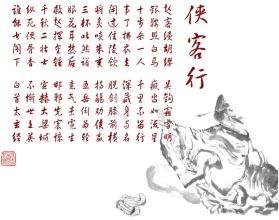 俠客行
趙客縵胡纓 吳鉤霜雪明
銀鞍照白馬 颯沓如流星
十步殺一人 千里不留行
事了拂衣去 深藏身與名
閒過信陵飲 脫劍膝前橫
將炙啖朱亥 持觴勸侯嬴
三杯吐然諾 五岳倒為輕
眼花耳熱後 意氣素霓生
救趙揮金鎚 邯鄲先震驚
千秋二壯士 烜赫大梁城
縱死俠骨香 不慚世上英
誰能書閣下 白首太玄經